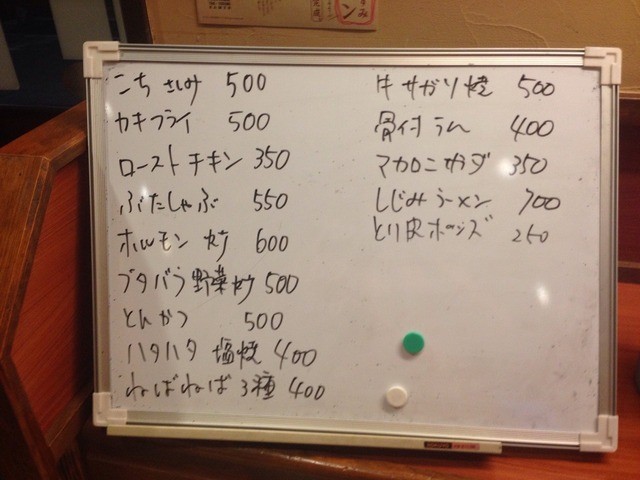 こち さしみ 500
カキフライ 500
ローストチキン 350
ぶたしゃぶ 550
ホルモン炒 600
ブタバラ野菜炒 500
とんかつ 500
ハタハタ 塩焼 400
ねばねば3種 400
牛サガリ焼 500
骨付ラム 400
マカロニサラダ 350
しじみラーメン 700
とり皮ポンズ 250